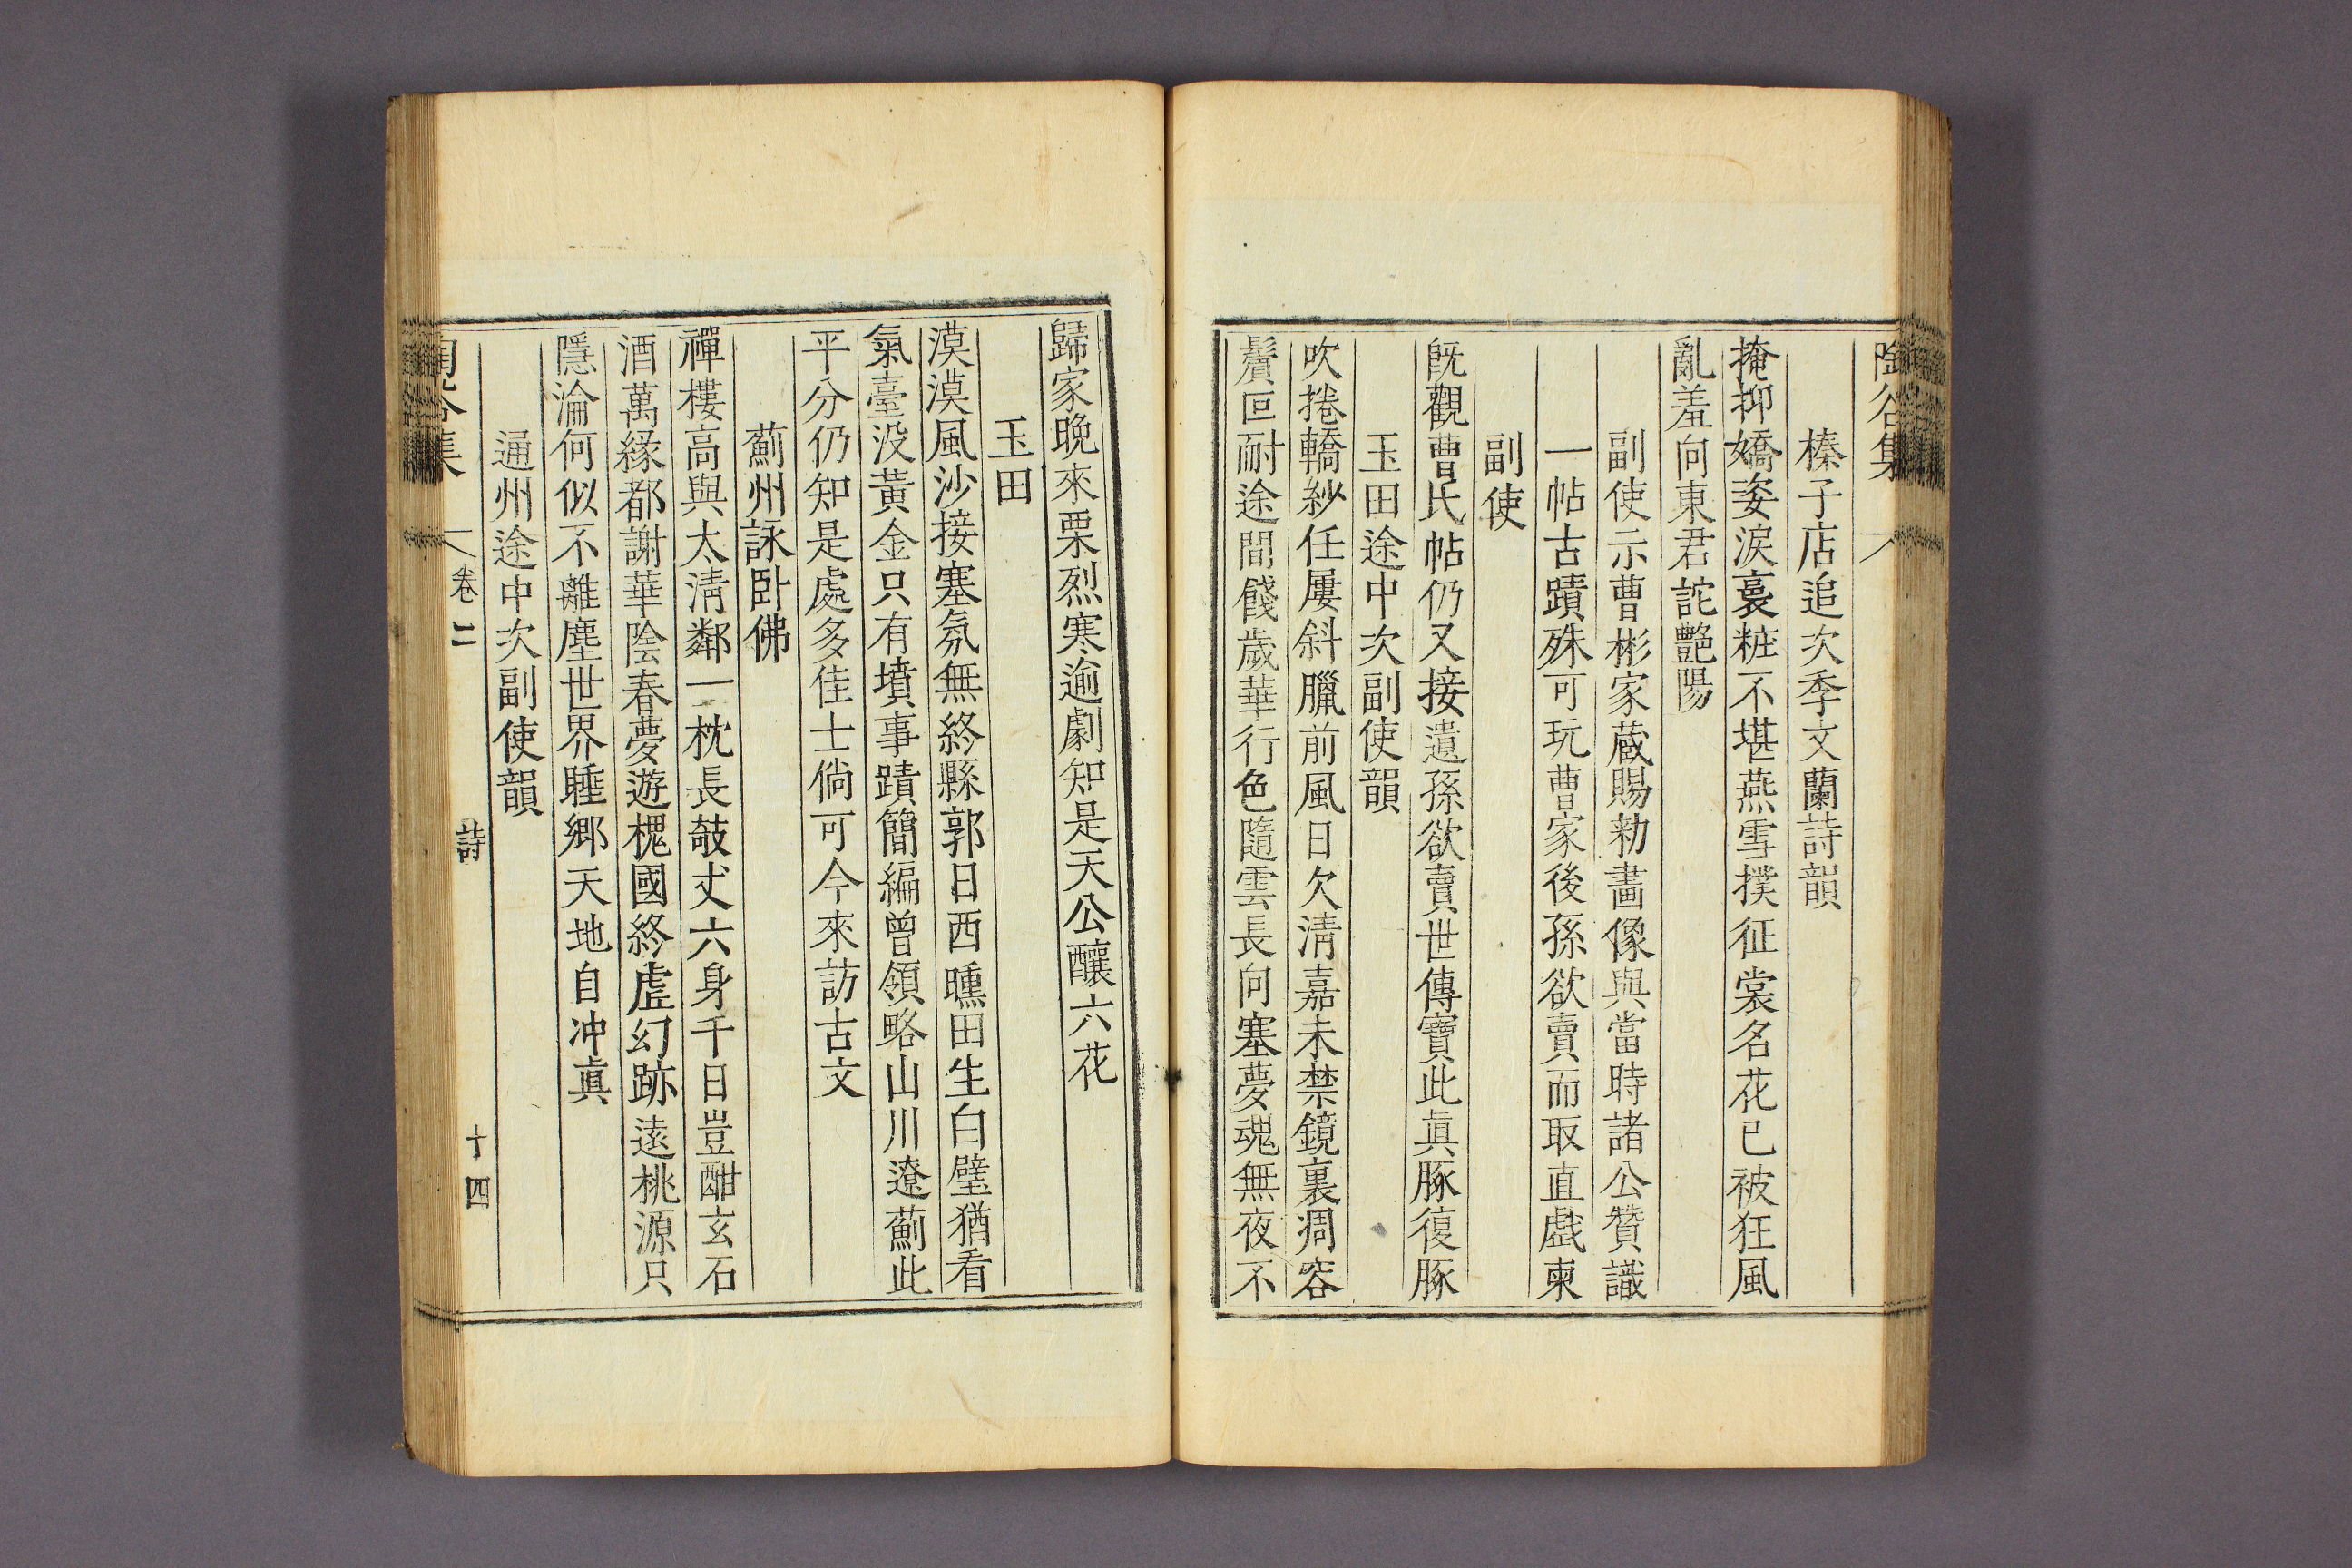 陶谷集
榛子店追次季文蘭詩韻
掩抑嬌姿淚裛粧不堪燕雪撲征裳名花已被狂風
亂羞向東君詫艶陽
副使示曹彬家蔵賜勑畫像與當時諸公贊識
一帖古蹟殊可玩曹家後孫欲賣而取直戱柬
副使
旣觀曹氏帖仍又接遺孫欲賣世傳寶此眞豚復豚
玉田途中次副使韻
吹捲轎紗任屢斜臘前風日欠淸嘉未禁鏡裏凋容
鬢叵耐途間餞歲華行色隨雲長向塞夢魂無夜不
歸家晩來栗烈寒逾劇知是天公釀六花
玉田
漠漠風沙接塞氛無終縣郭日西曛田生白璧猶看
氣臺没黃金只有墳事蹟簡編曾領略山川遼薊此
平分仍知是處多佳士倘可今來訪古文
薊州詠卧佛
禪樓高與太淸鄰一枕長攲丈六身千日豈酣玄石
酒萬緣都謝華陰春夢遊槐國終虛幻跡遠桃源只
隱淪何似不離塵世界睡鄉天地自冲眞
通州途中次副使韻
陶谷集 卷二 詩 十四